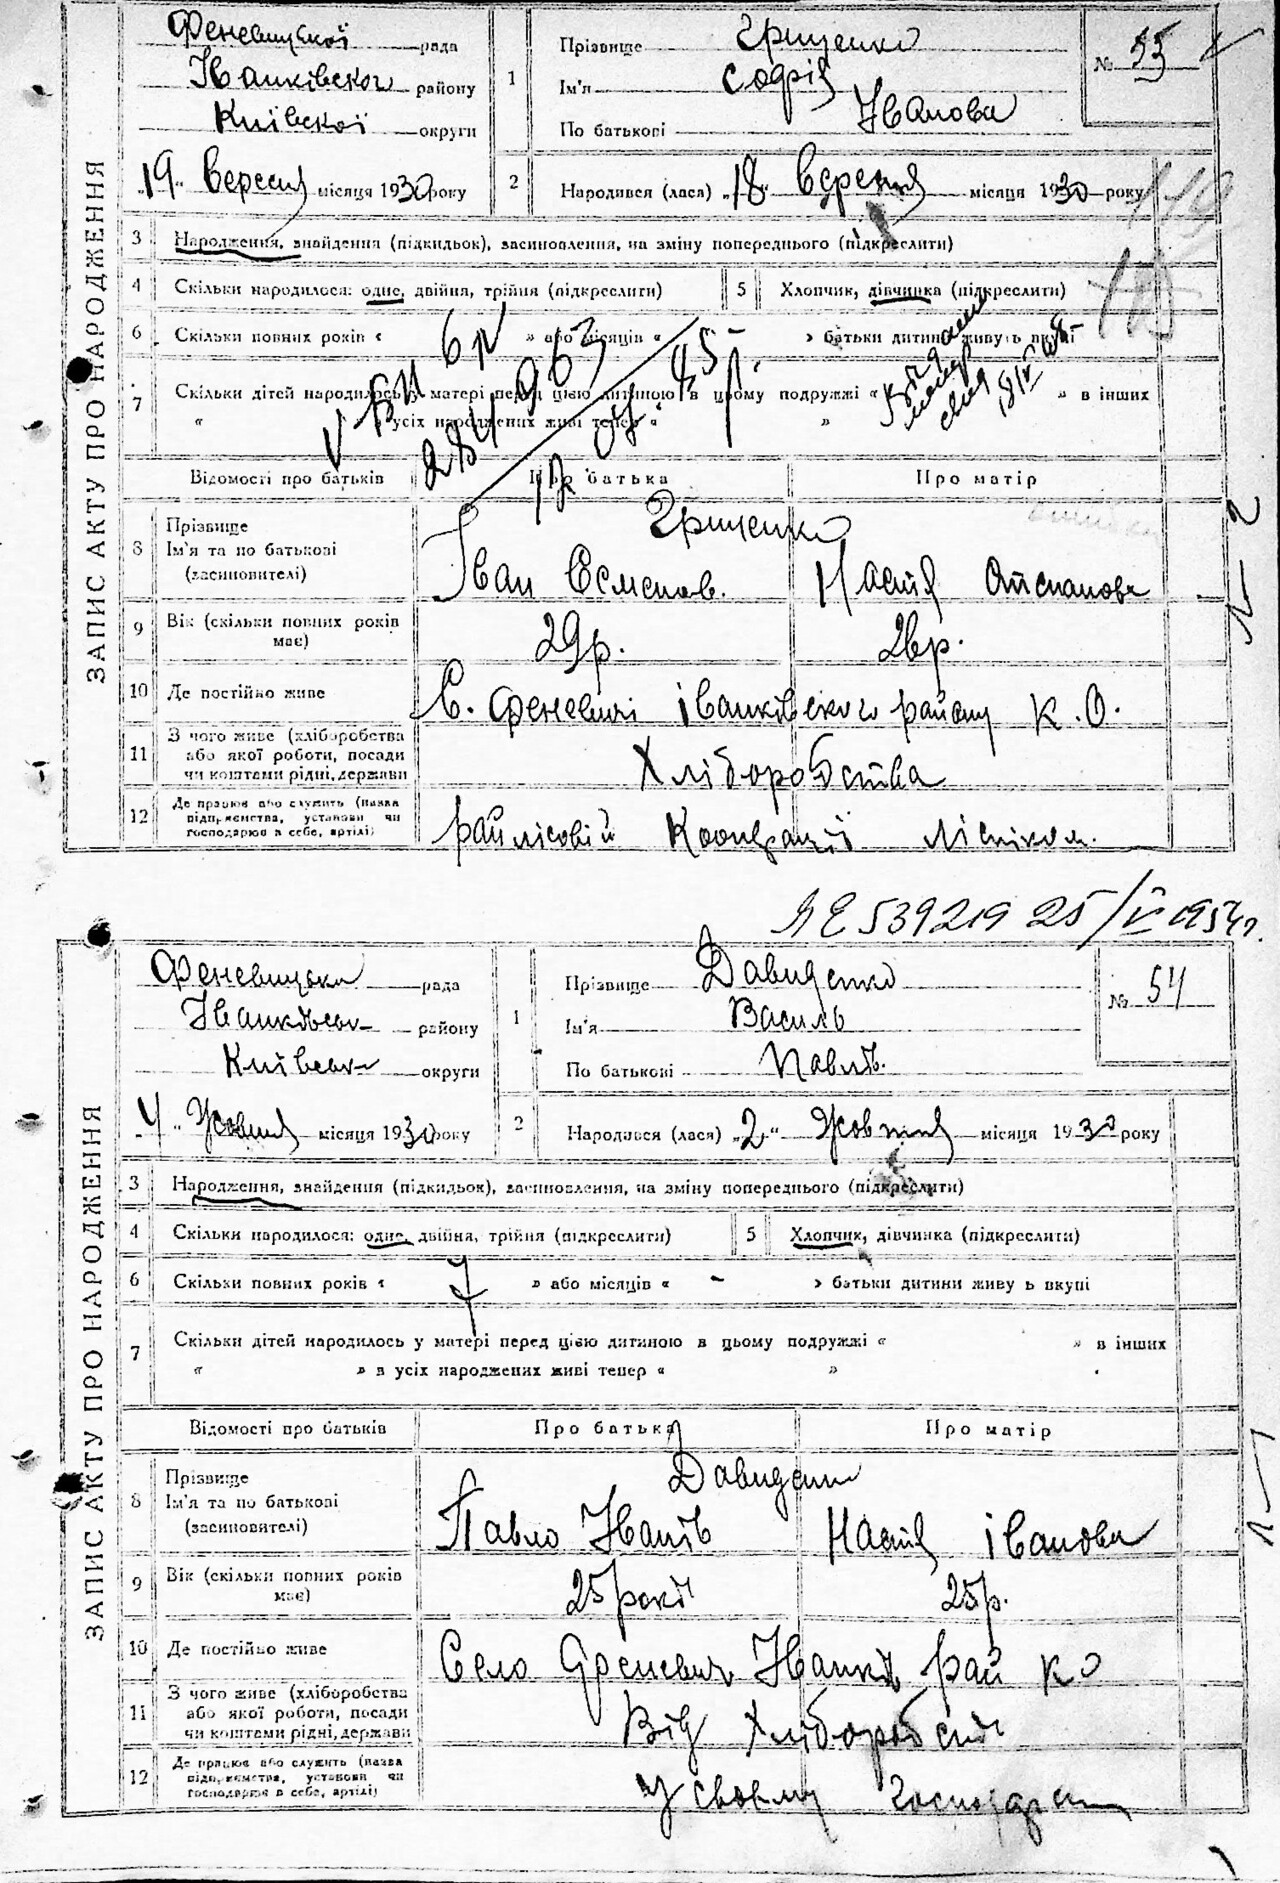 ЗАПИС АКТУ ПРО НАРОДЖЕННЯ
Феневицької рада
Іванківског району
Київської округи
„19“ Вересня місяця 1930 року
1 Прізвище Грищенко
Ім'я Софія
По батькові Іванова
№ 53
2 Народився (лася) „18“ Вересня місяця 1930 року
3 Народження, знайдення (підкидьок), засиновлення, на зміну попереднього (підкреслити)
4 Скільки народилося: одне, двійня, трійня (підкреслити)
5 Хлопчик, дівчинка (підкреслити)
6 Скільки повних років « » або місяців « » батьки дитини живуть вкупі
7 Скільки дітей народилось у матері перед цією дитиною в цьому подружжі « » в інших
« усіх народжених живі тепер « »
Відомості про батьків Про батька Про матір
8 Прізвище
Ім'я та по батькові
(засиновителі)
Грищенко
Іван Семенов. Настя Остапова
9 Вік (скільки повних років має) 29р. 26р.
10 Де постійно живе С. Феневичі Іванківського району К.О.
11 З чого живе (хліборобства або якої роботи, посади чи коштами рідні, держави Хліборобства
12 Де працює або служить (назва підприємства, установи чи господарює в себе, артілі)
райлісовій Кооперації
539219 25/V 1954г.
ЗАПИС АКТУ ПРО НАРОДЖЕННЯ
Феневицька рада
Іванківськ району
Київськ округи
„4“ Жовтня місяця 1930 року
1 Прізвище Давиденко
Ім'я Василь
По батькові Павлів.
№ 54
2 Народився (лася) „2“ Жовтня місяця 1930 року
3 Народження, знайдення (підкидьок), засиновлення, на зміну попереднього (підкреслити)
4 Скільки народилося: одне, двійня, трійня (підкреслити)
5 Хлопчик, дівчинка (підкреслити)
6 Скільки повних років « 7 » або місяців « - » батьки дитини живу ь вкупі
7 Скільки дітей народилось у матері перед цією дитиною в цьому подружжі « » в інших
« » в усіх народжених живі тепер « »
Відомості про батьків Про батька Про матір
8 Прізвище
Ім'я та по батькові
(засиновителі)
Давиденко
Павло Іванів Настя Іванова
9 Вік (скільки повних років має) 25 років 25р.
10 Де постійно живе Село Феневич Іванків рай К О
11 З чого живе (хліборобства або якої роботи, посади чи коштами рідні, держави Від Хліборобств
12 Де працює або служить (назва підприємства, установи чи господарює в себе, артілі)
У своєму